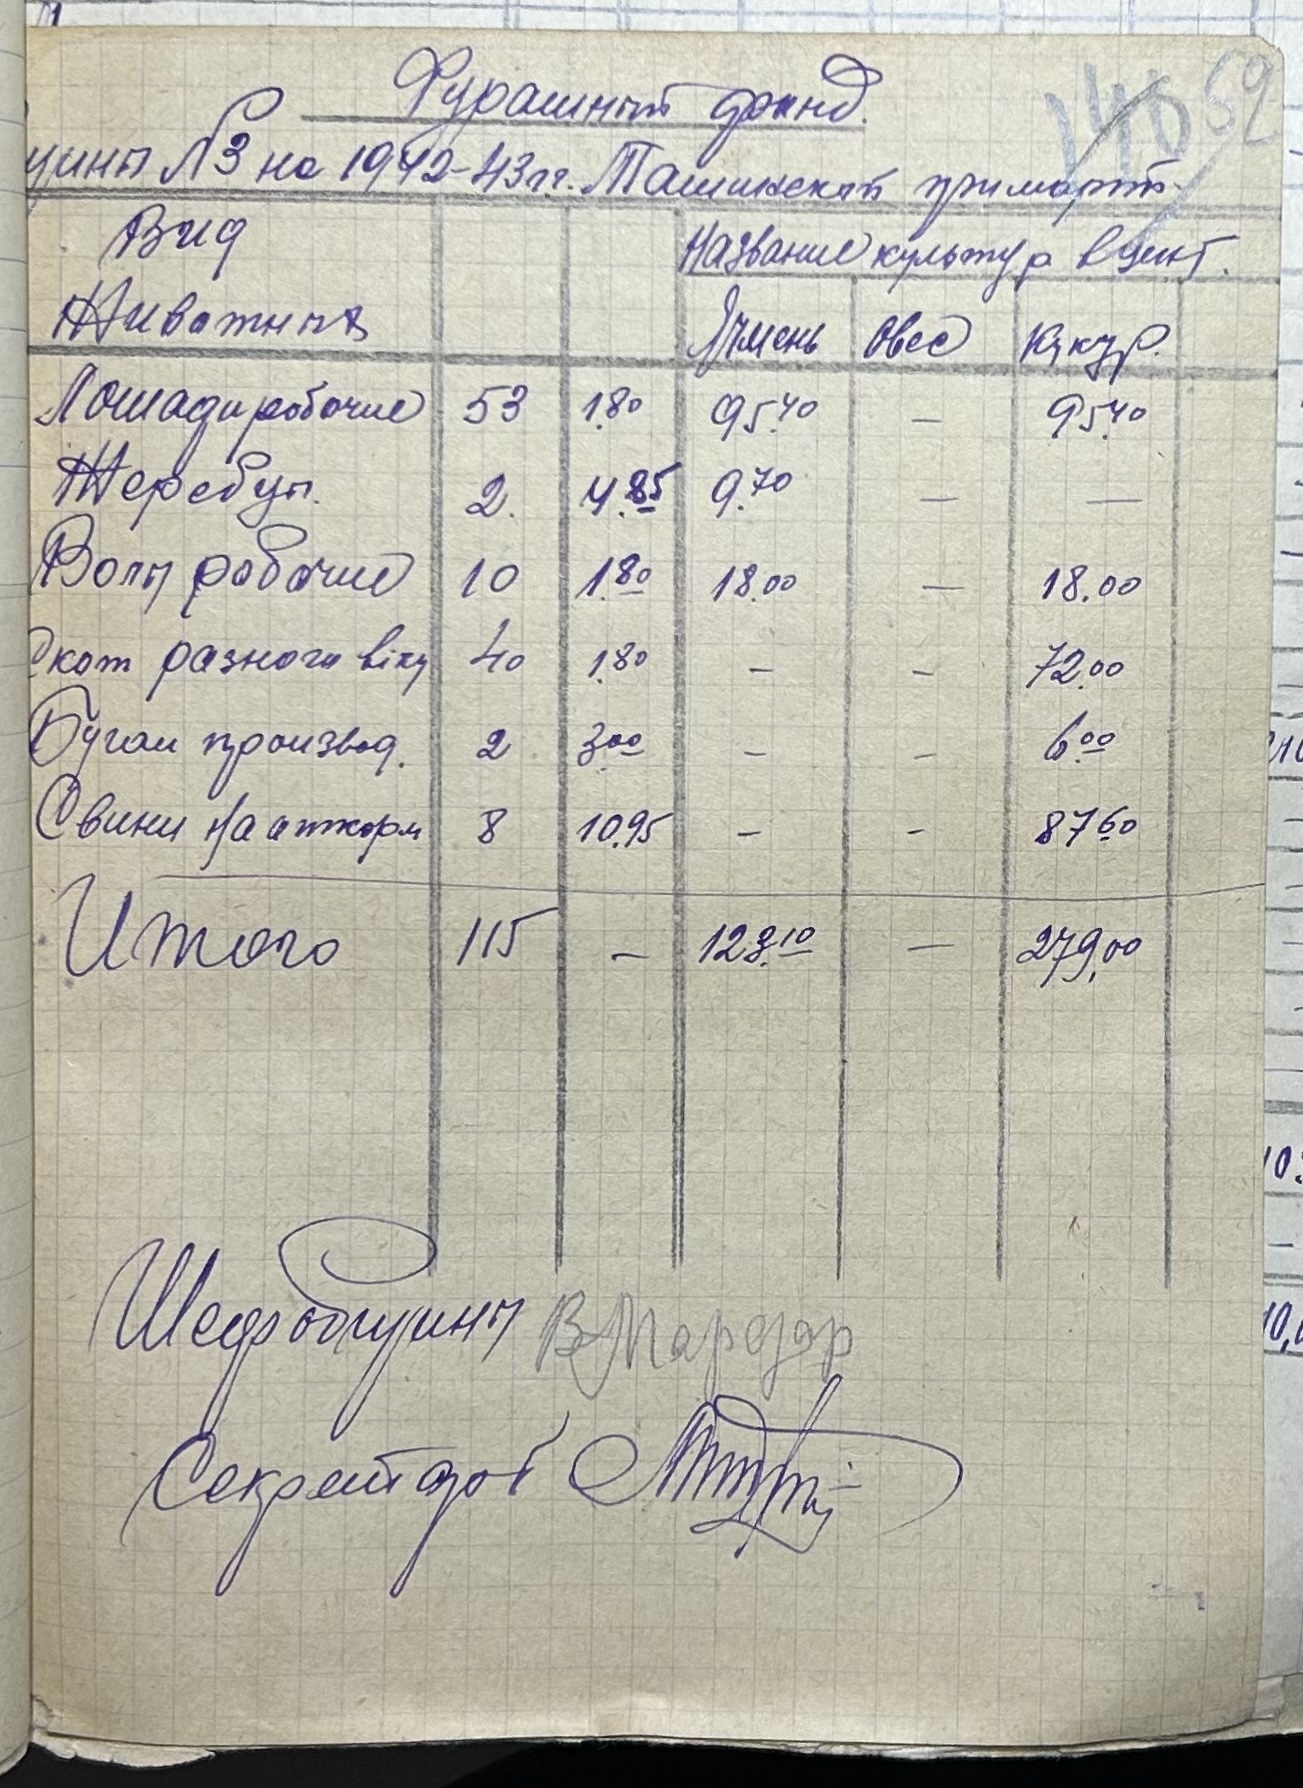 Фуражный фонд.
59
щины №3 на 1942-43 гг. Ташинской примарт.
Вид Животных Название культур в цент.
Ячмень Овес Кукур.
Лошади рабочие 53 1.80 95.40 — 95.40
Жеребцы. 2. 4.85 9.70 — —
Волы рабочие 10 1.80 18.00 — 18.00
Скот разного віку 40 1.80 — — 72.00
Бугаи производ. 2 3.00 — — 6.00
Свини на откорм 8 10.95 — — 87.60
Итого 115 — 123.10 — 279,00
Шеф общины
Секретарь